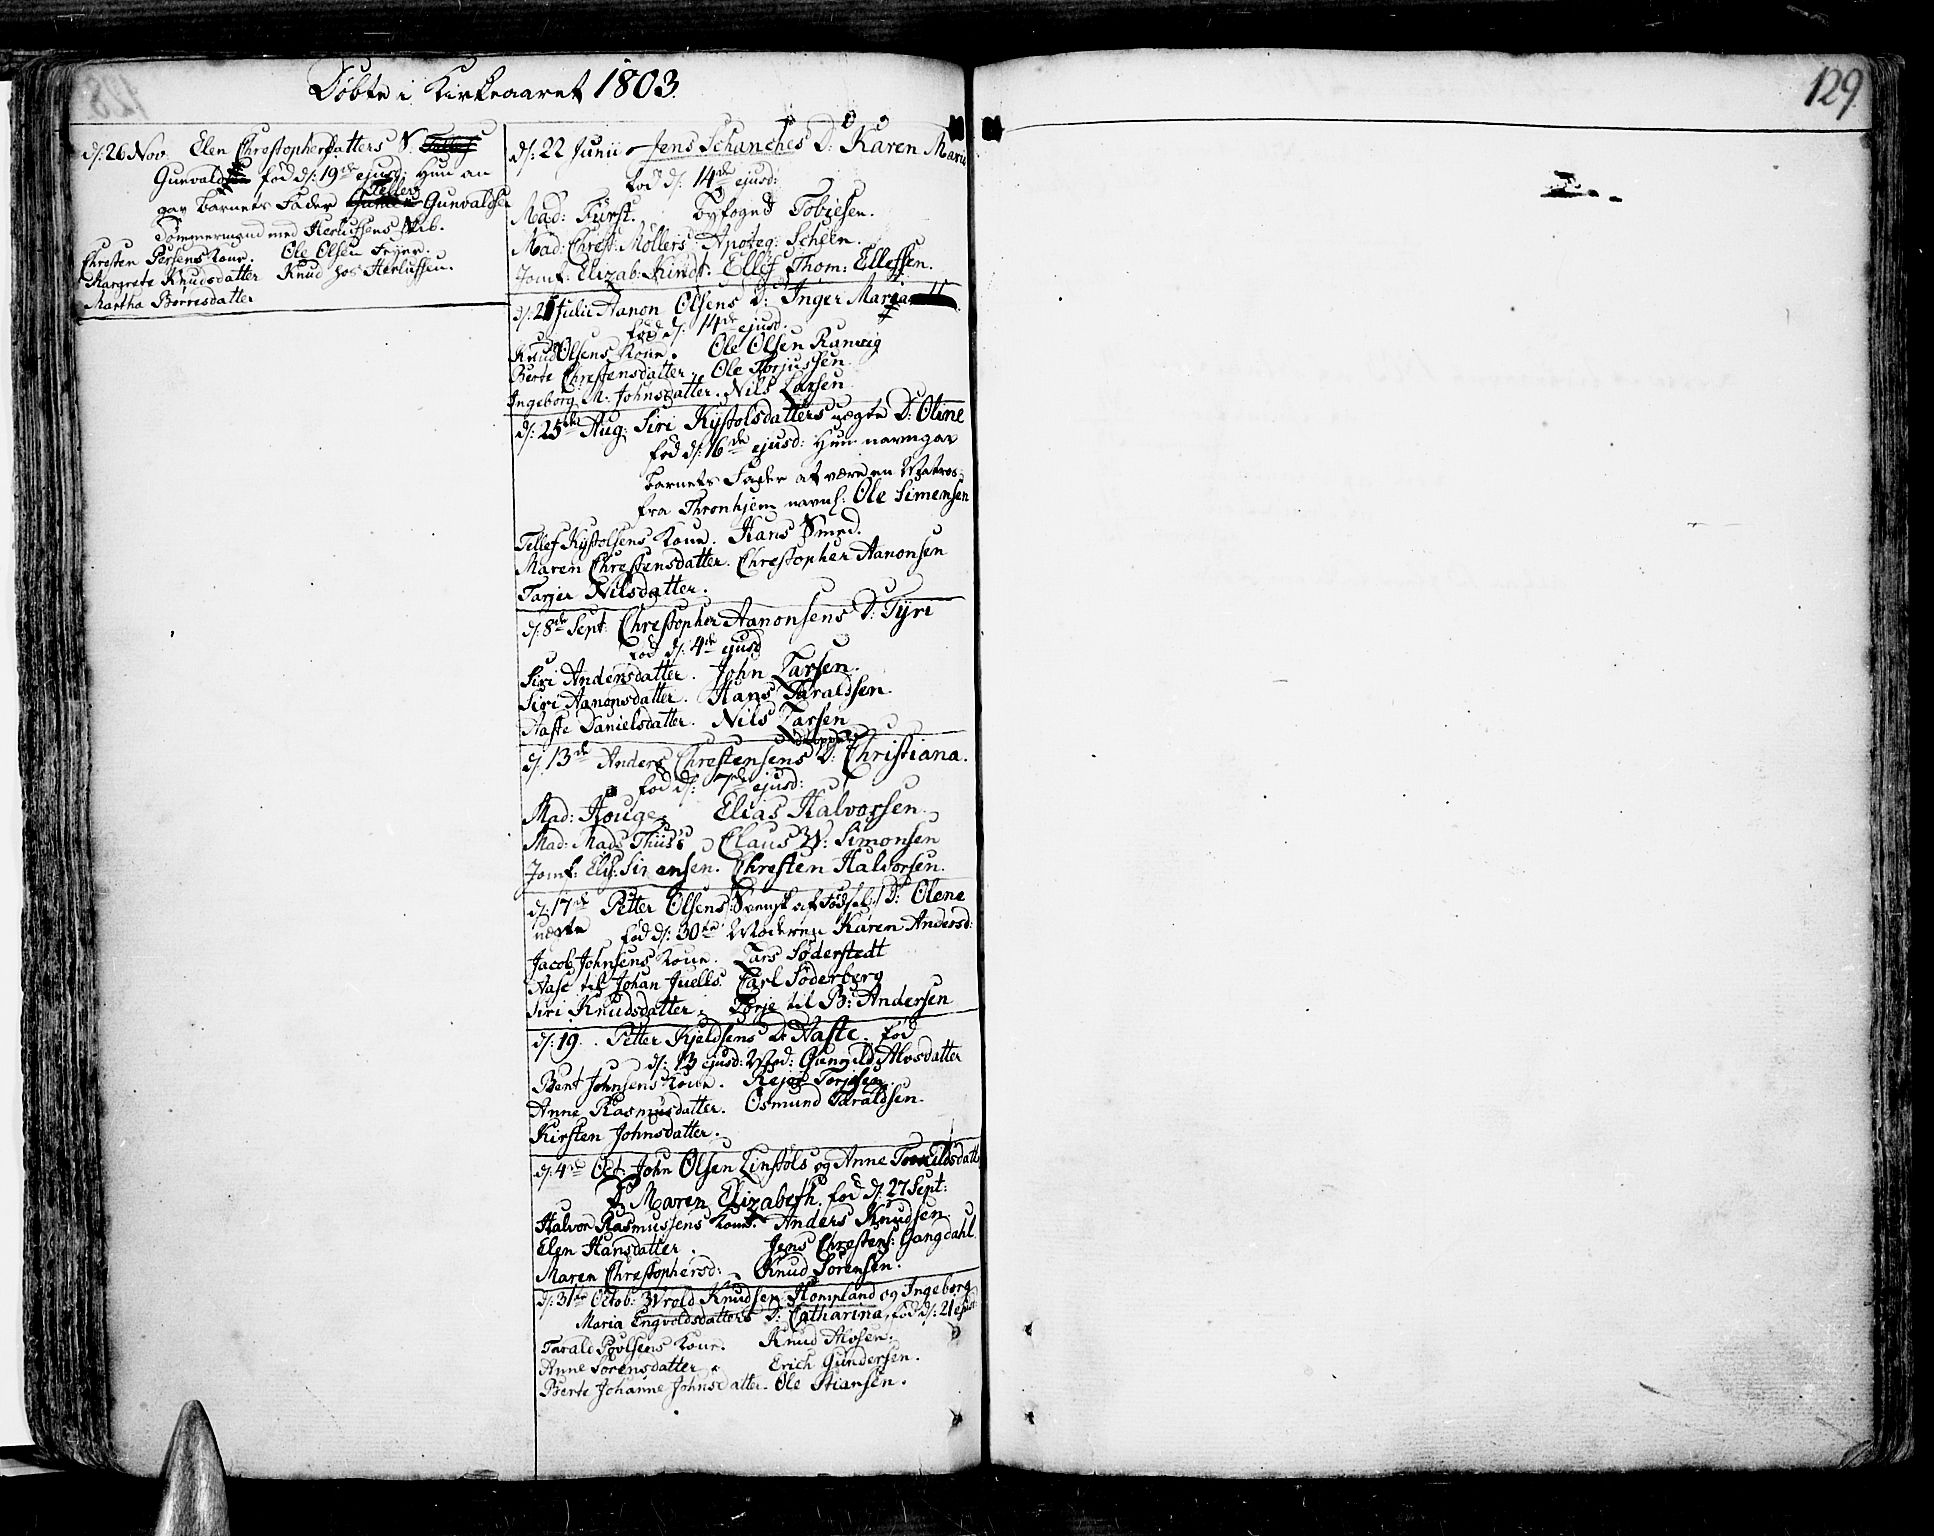 Døbte i Kirkeaaret 1803.
129
d: 26 Nov. Elen Christophersdatters S.
Gunvald fød d: 19de ejusd: Hun an
gav barnets Fader Tellef Gunvaldsen
Tømmermand med Herlufsens Skib.
Christen Persens Kone. Ole Olsen Frejer.
Margrete Knudsdatter Knud hos Herlufsen.
Martha Børresdatter
d: 22 Junii Jens Schanches D: Karen Maria
fød d: 14de ejusd:
Mad: Fürst. Byfoged Tobiesen.
Mad: Christ: Møllers Apoteq: Scheen.
Jomf: Elizab: Kindt. Ellef Thom: Ellefsen.
d: 21 Julii Aanon Olsens D: Inger Maria
fød d: 14de ejusd.
Knud Olsens Kone. Ole Olsen Ranvig
Berte Christensdatter. Ole Torjussen
Ingeborg M. Johnsdatter. Nils Larsen
d: 25de Aug: Siri Kjstolsdatters uægte D: Oline
fød d: 16de ejusd: Hun navngav
barnets Fader at være en Matros
fra Thronhjem navnl: Ole Simensen
Tellef Kjstolsens Kone. Hans Smed.
Maren Christensdatter. Christopher Aanonsen
Tarjer Nilsdatter.
d: 8de Sept: Christopher Aanonsens D: Tyri
fød d: 4de ejusd
Siri Andersdatter. John Larsen.
Siri Aanonsdatter. Hans Taraldsen.
Aaste Danielsdatter. Nils Larsen
d: 13de Anders Christensens D: Christiana.
fød d: 7de ejusd:
Mad: Houge. Elias Halvorsen.
Mad: Mads Thiis's Claus W: Simonsen
Jomf: Elis: Simensen. Christen Halvorsen.
d: 17de Petter Olsens /: Svensk af Fødsel :/ D: Olene
uægte fød d: 30te Moderen Karen Andersd:
Jacob Johnsens Kone. Lars Søderstedt
Aase til Johan Juells. Carl Søderberg
Siri Knudsdatter. Torje til B: Andersen
d: 19. Petter Kjeldsens D: Aaste. fød
d: 13 ejusd: Mod: Gunnild Alvsdatter
Bent Johnsens Kone. Rejer Torjesen.
Anne Rasmusdatter. Osmund Taraldsen.
Kirsten Johnsdatter.
d: 4de Oct: John Olsen Linstøls og Anne Torkildsdatt:
D: Maren Elizabeth. fød d: 27 Sept:
Halvor Rasmussens Kone. Anders Knudsen.
Elen Hansdatter. Jens Christens: Gangdahl.
Maren Christophersd: Knud Sørensen.
d: 31te Octob: Wrold Knudsen Hompland og Ingeborg
Maria Engvoldsdatters D: Catharina, fød d: 21 ejusd:
Tarald Povlsens Kone. Knud Alvsen.
Anne Sørensdatter. Erich Gundersen.
Berte Johanne Johnsdatter. Ole Stiansen.